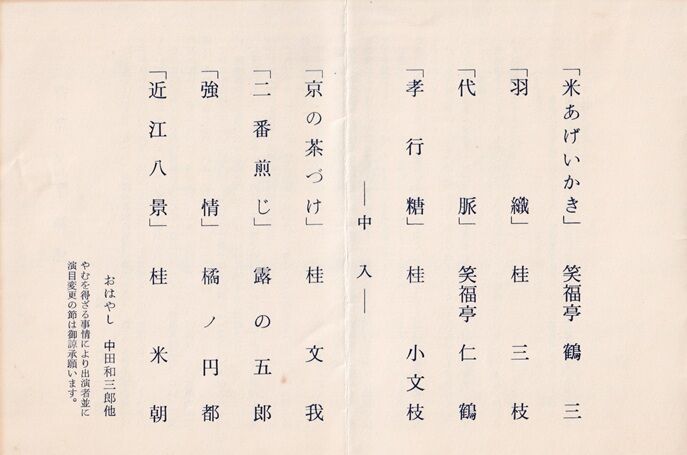 「米あげいかき」 笑福亭 鶴三
「羽織」 桂 三枝
「代脈」 笑福亭 仁鶴
「孝行糖」 桂 小文枝
――中入――
「京の茶づけ」 桂 文我
「二番煎じ」 露の五郎
「強情」 橘ノ円都
「近江八景」 桂 米朝
おはやし 中田和三郎他
やむを得ざる事情により出演者並に
演目変更の節は御諒承願います。